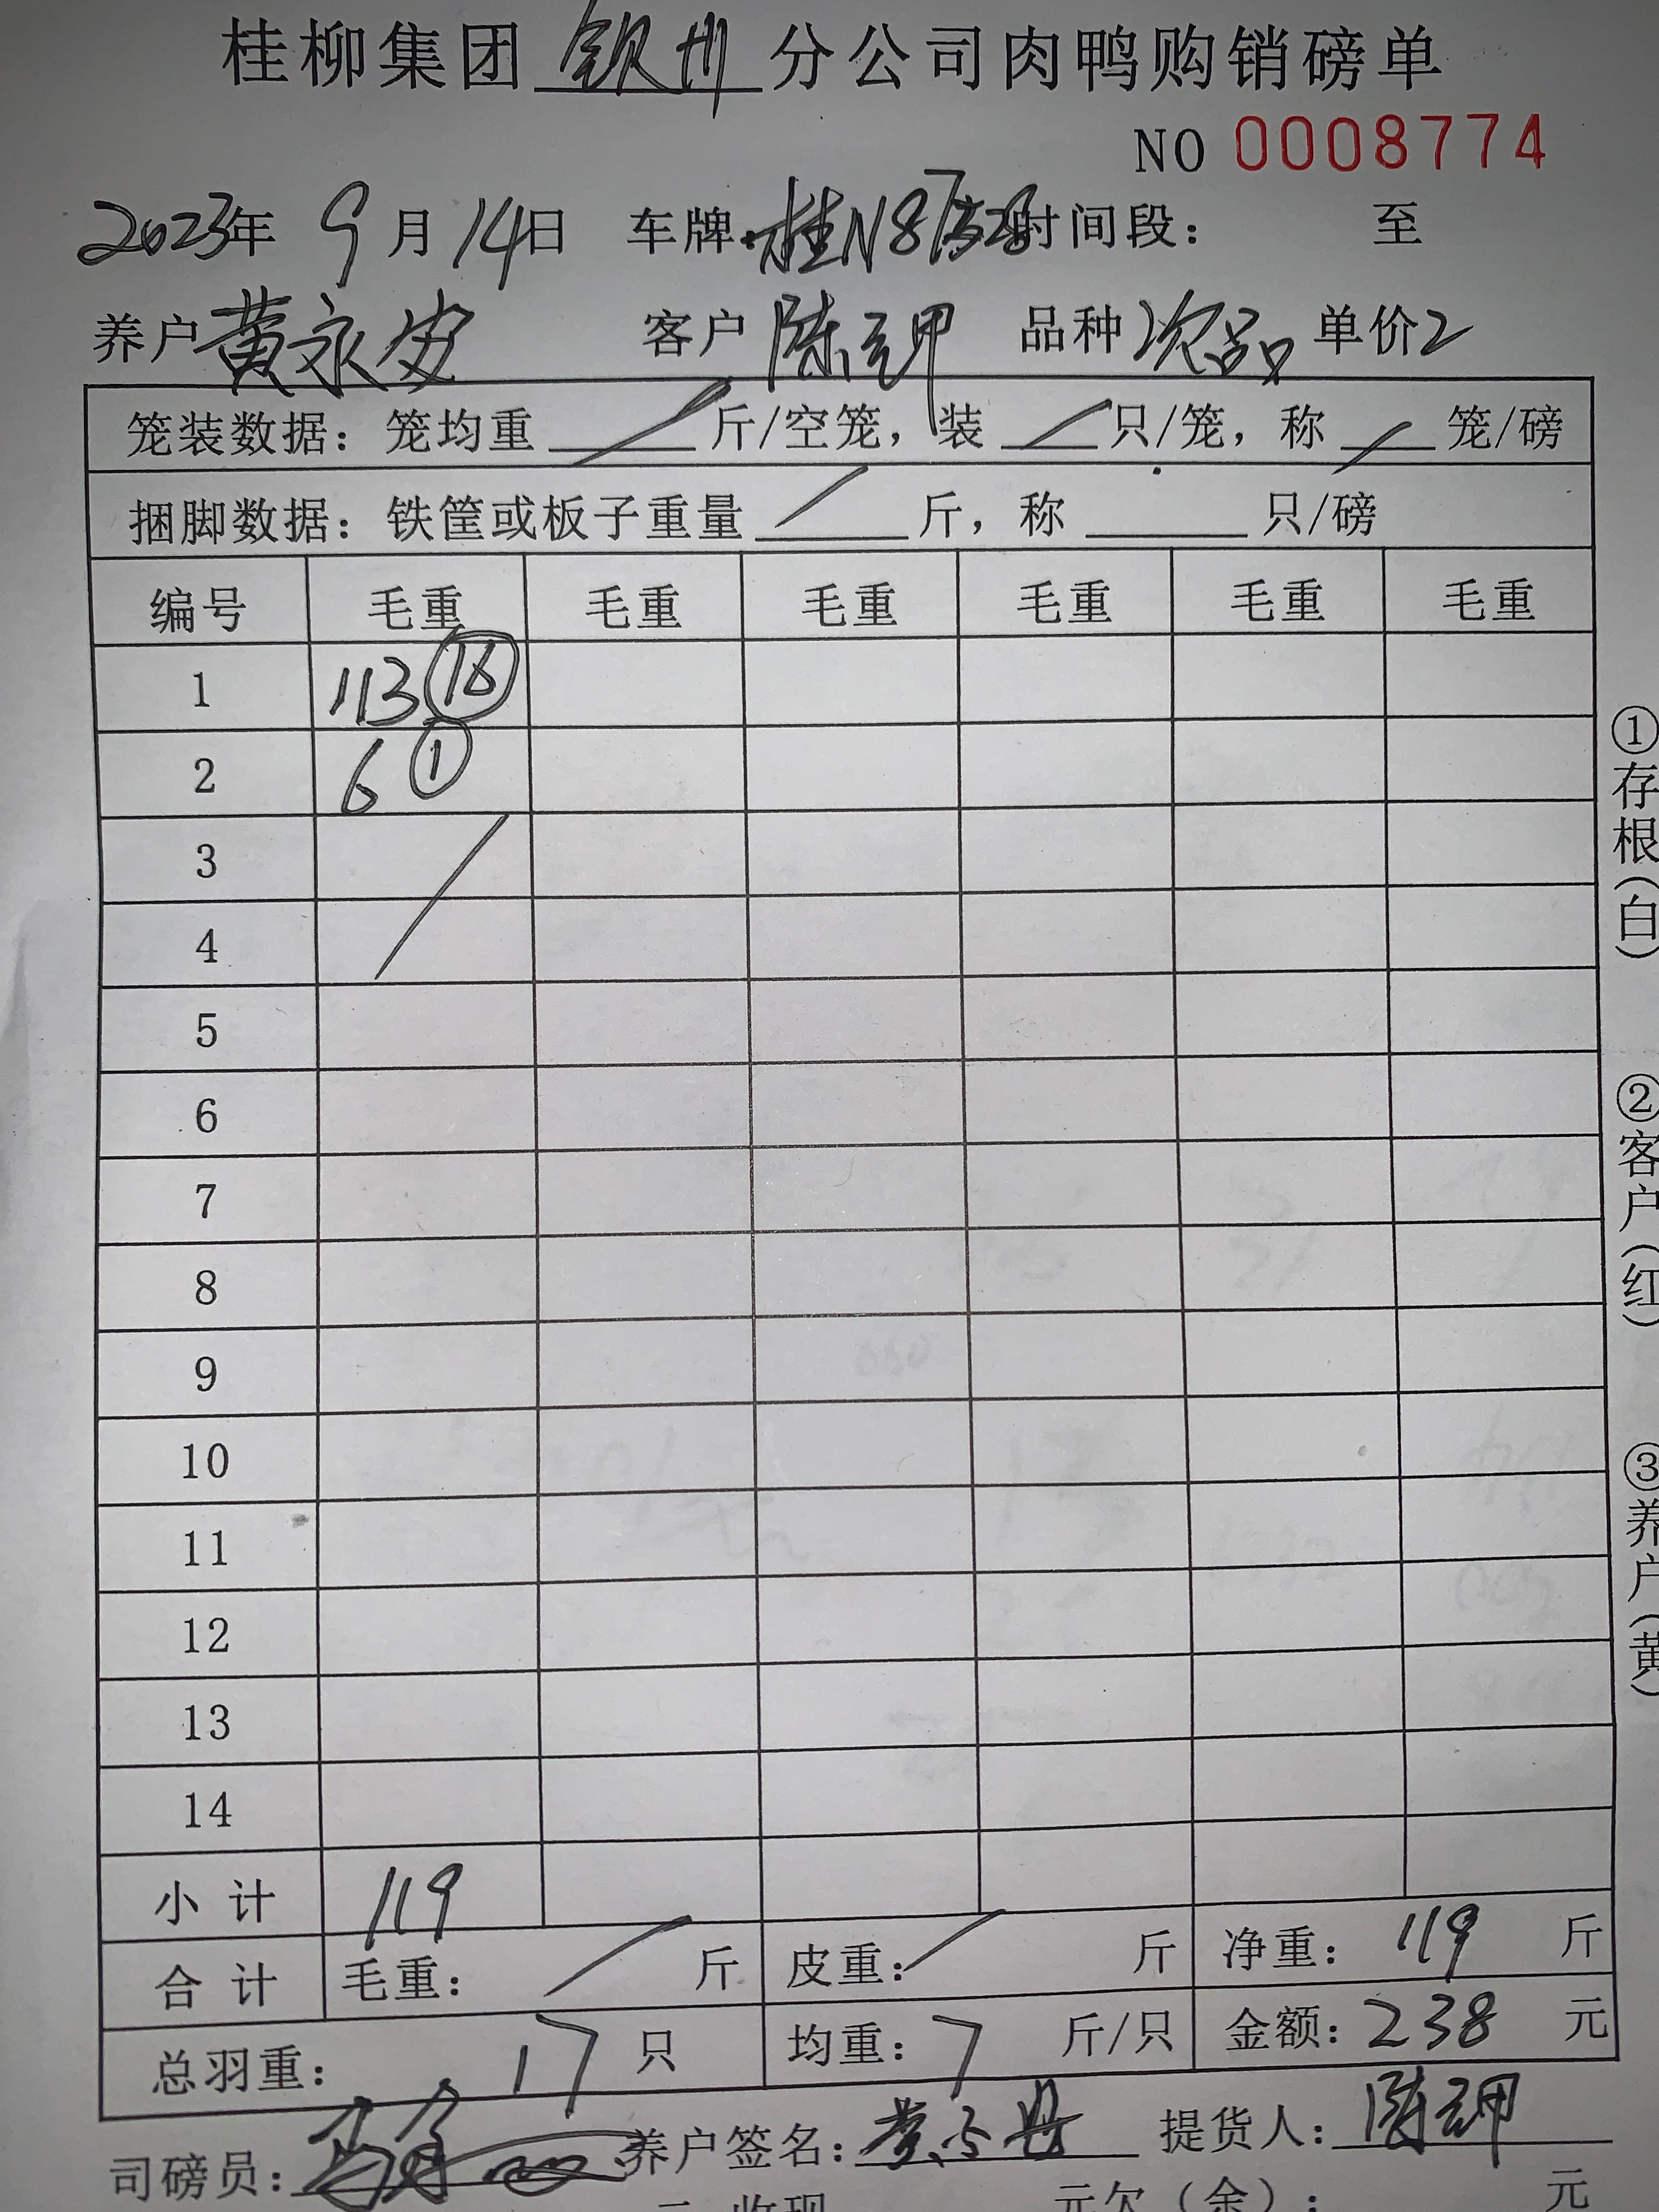 桂柳集团 钦州 分公司肉鸭购销磅单
NO 0008774
2023年 9月14日 车牌:桂N87528 时间段: 至
养户 黄永安 客户 陈玉明 品种 次品 单价2
笼装数据:笼均重 / 斤/空笼,装 / 只/笼,称 / 笼/磅
捆脚数据:铁筐或板子重量 / 斤,称 只/磅
编号 毛重 毛重 毛重 毛重 毛重 毛重
1 113 ⑯
2 6 ①
3 /
4
5
6
7
8
9
10
11
12
13
14
小计 119
合计 毛重: / 斤 皮重: / 斤 净重: 119 斤
总羽重: 17 只 均重: 7 斤/只 金额: 238 元
司磅员: 养户签名: 提货人:
元 收现 元欠(余): 元
①存根(白)
②客户(红)
③养户(黄)